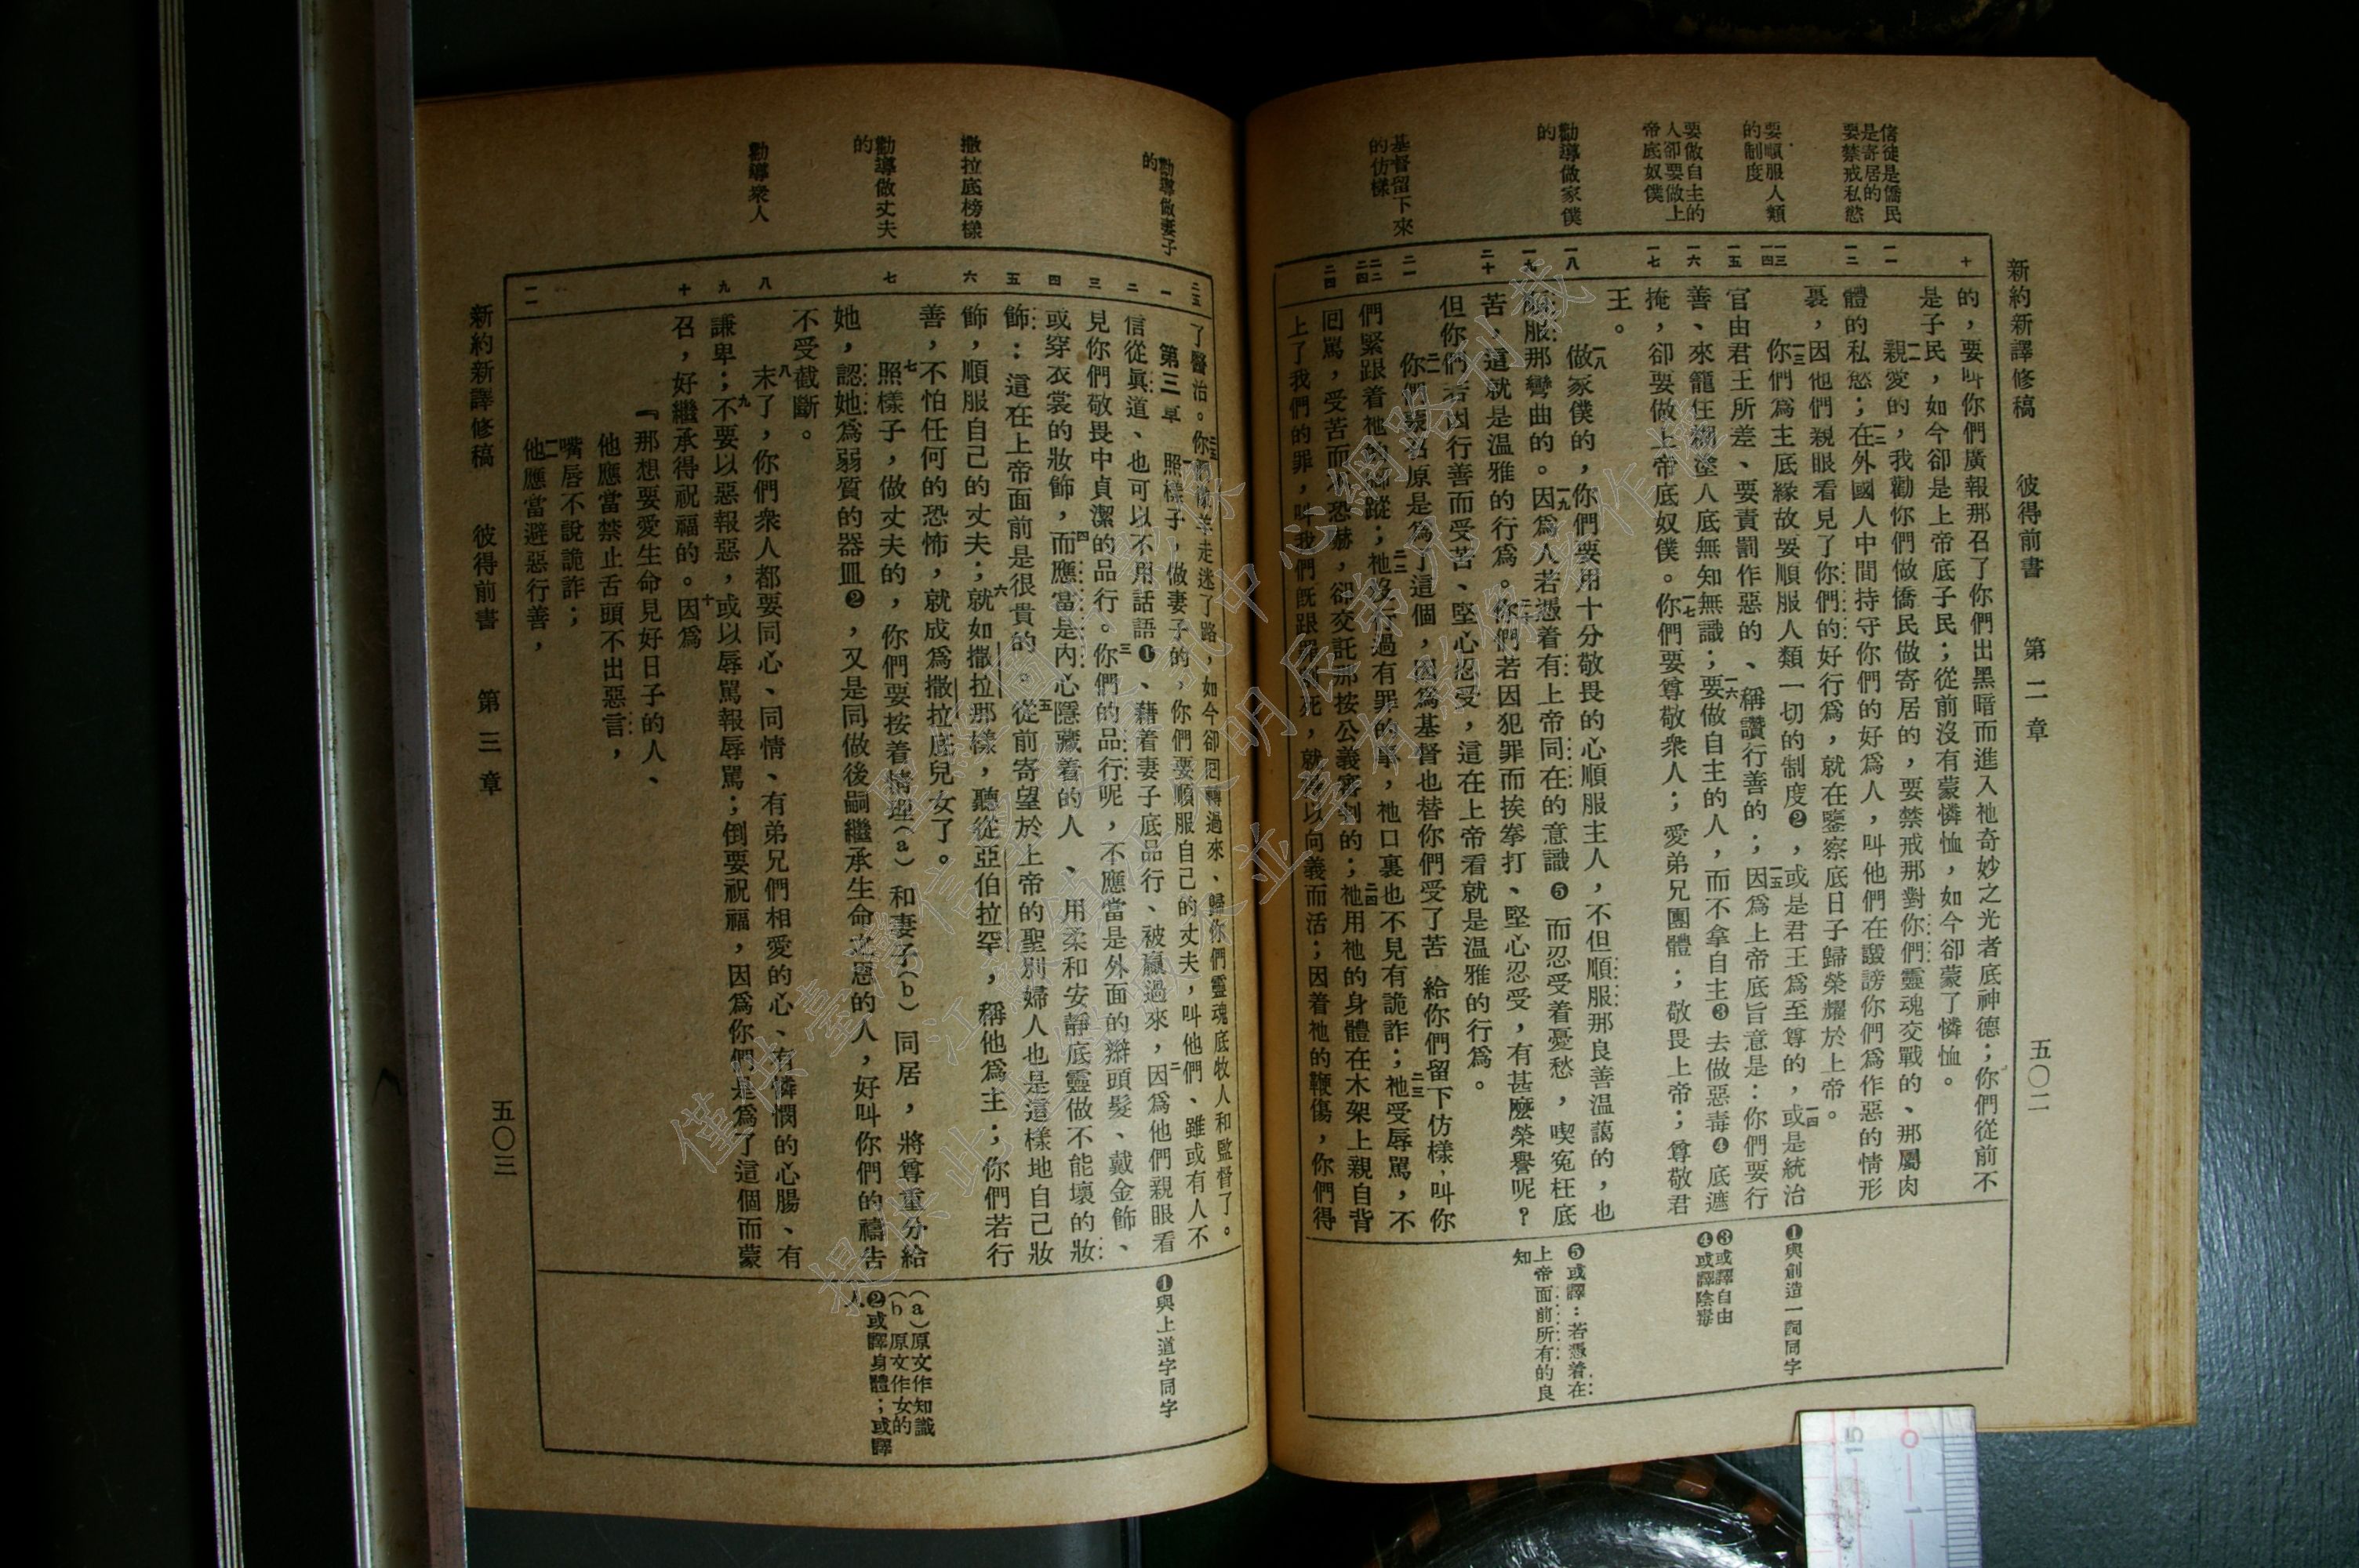 新約新譯修稿 彼得前書 第二章 五〇二
信徒是僑民
是寄居的
要禁戒私慾
要順服人類
的制度
要做自主的
人卻要做上
帝底奴僕
勸導做家僕
的
基督留下來
的仿樣
十
一一
一二
一三
一四
一五
一六
一七
一八
一九
二十
二一
二二
二四
二四
的，要叫你們廣報那召了你們出黑暗而進入祂奇妙之光者底神德；你們從前不
是子民，如今卻是上帝底子民；從前沒有蒙憐恤，如今卻蒙了憐恤。
一一親愛的，我勸你們做僑民做寄居的，要禁戒那對你們靈魂交戰的、那屬肉
體的私慾；一二在外國人中間持守你們的好為人，叫他們在譭謗你們為作惡的情形
裏，因他們親眼看見了你們的好行為，就在鑒察底日子歸榮耀於上帝。
一三你們為主底緣故要順服人類一切的制度❷，或是君王為至尊的，一四或是統治
官由君王所差、要責罰作惡的、稱讚行善的；一五因為上帝底旨意是：你們要行
善、來籠住糊塗人底無知無識；一六要做自主的人，而不拿自主❸去做惡毒❹底遮
掩，卻要做上帝底奴僕。一七你們要尊敬衆人；愛弟兄團體；敬畏上帝；尊敬君
王。
一八做家僕的，你們要用十分敬畏的心順服主人，不但順服那良善溫藹的，也
順服那彎曲的。一九因為人若憑着有上帝同在的意識❺而忍受着憂愁，喫冤枉底
苦，這就是溫雅的行為。二十你們若因犯罪而挨拳打、堅心忍受，有甚麼榮譽呢？
但你們若因行善而受苦、堅心忍受，這在上帝看就是溫雅的行為。
二一你們蒙召原是為了這個，因為基督也替你們受了苦 給你們留下仿樣，叫你
們緊跟着祂的腳蹤；二二祂沒行過有罪的事，祂口裏也不見有詭詐；二三祂受辱罵，不
囘罵，受苦而不恐赫，卻交託那按公義審判的；二四祂用祂的身體在木架上親自背
上了我們的罪，叫我們旣跟罪死，就可以向義而活；因着祂的鞭傷，你們得
❶與創造一詞同字
❸或譯自由
❹或譯陰毒
❺或譯：若憑着在
上帝面前所有的良
知
勸導做妻子
的
撒拉底榜樣
勸導做丈夫
的
勸導衆人
二五
一
二
三
四
五
六
七
八
九
十
一一
了醫治。二五你們像羊走迷了路，如今卻囘轉過來、歸你們靈魂底牧人和監督了。
第三章 一照樣子，做妻子的，你們要順服自己的丈夫，叫他們、雖或有人不
信從眞道、也可以不用話語❶、藉着妻子底品行、被贏過來，二因為他們親眼看
見你們敬畏中貞潔的品行。三你們的品行呢，不應當是外面的辮頭髮、戴金飾、
或穿衣裳的妝飾，四而應當是內心隱藏着的人、用柔和安靜底靈做不能壞的妝
飾：這在上帝面前是很貴的。五從前寄望於上帝的聖別婦人也是這樣地自己妝
飾，順服自己的丈夫；六就如撒拉那樣，聽從亞伯拉罕，稱他為主；你們若行
善，不怕任何的恐怖，就成為撒拉底兒女了。
七照樣子，做丈夫的，你們要按着情理(a)和妻子(b)同居，將尊重分給
她，認她為弱質的器皿❷，又是同做後嗣繼承生命之恩的人，好叫你們的禱告
不受截斷。
八末了，你們衆人都要同心、同情、有弟兄們相愛的心、有憐憫的心腸、有
謙卑；九不要以惡報惡，或以辱罵報辱罵；倒要祝福，因為你們是為了這個而蒙
召，好繼承得祝福的。十因為
『那想要愛生命見好日子的人、
他應當禁止舌頭不出惡言，
嘴唇不說詭詐；
一一他應當避惡行善，
❶與上道字同字
(a)原文作知識
(b 原文作女的
❷或譯身體；或譯
人
新約新譯修稿 彼得前書 第三章 五〇三
15
0
1